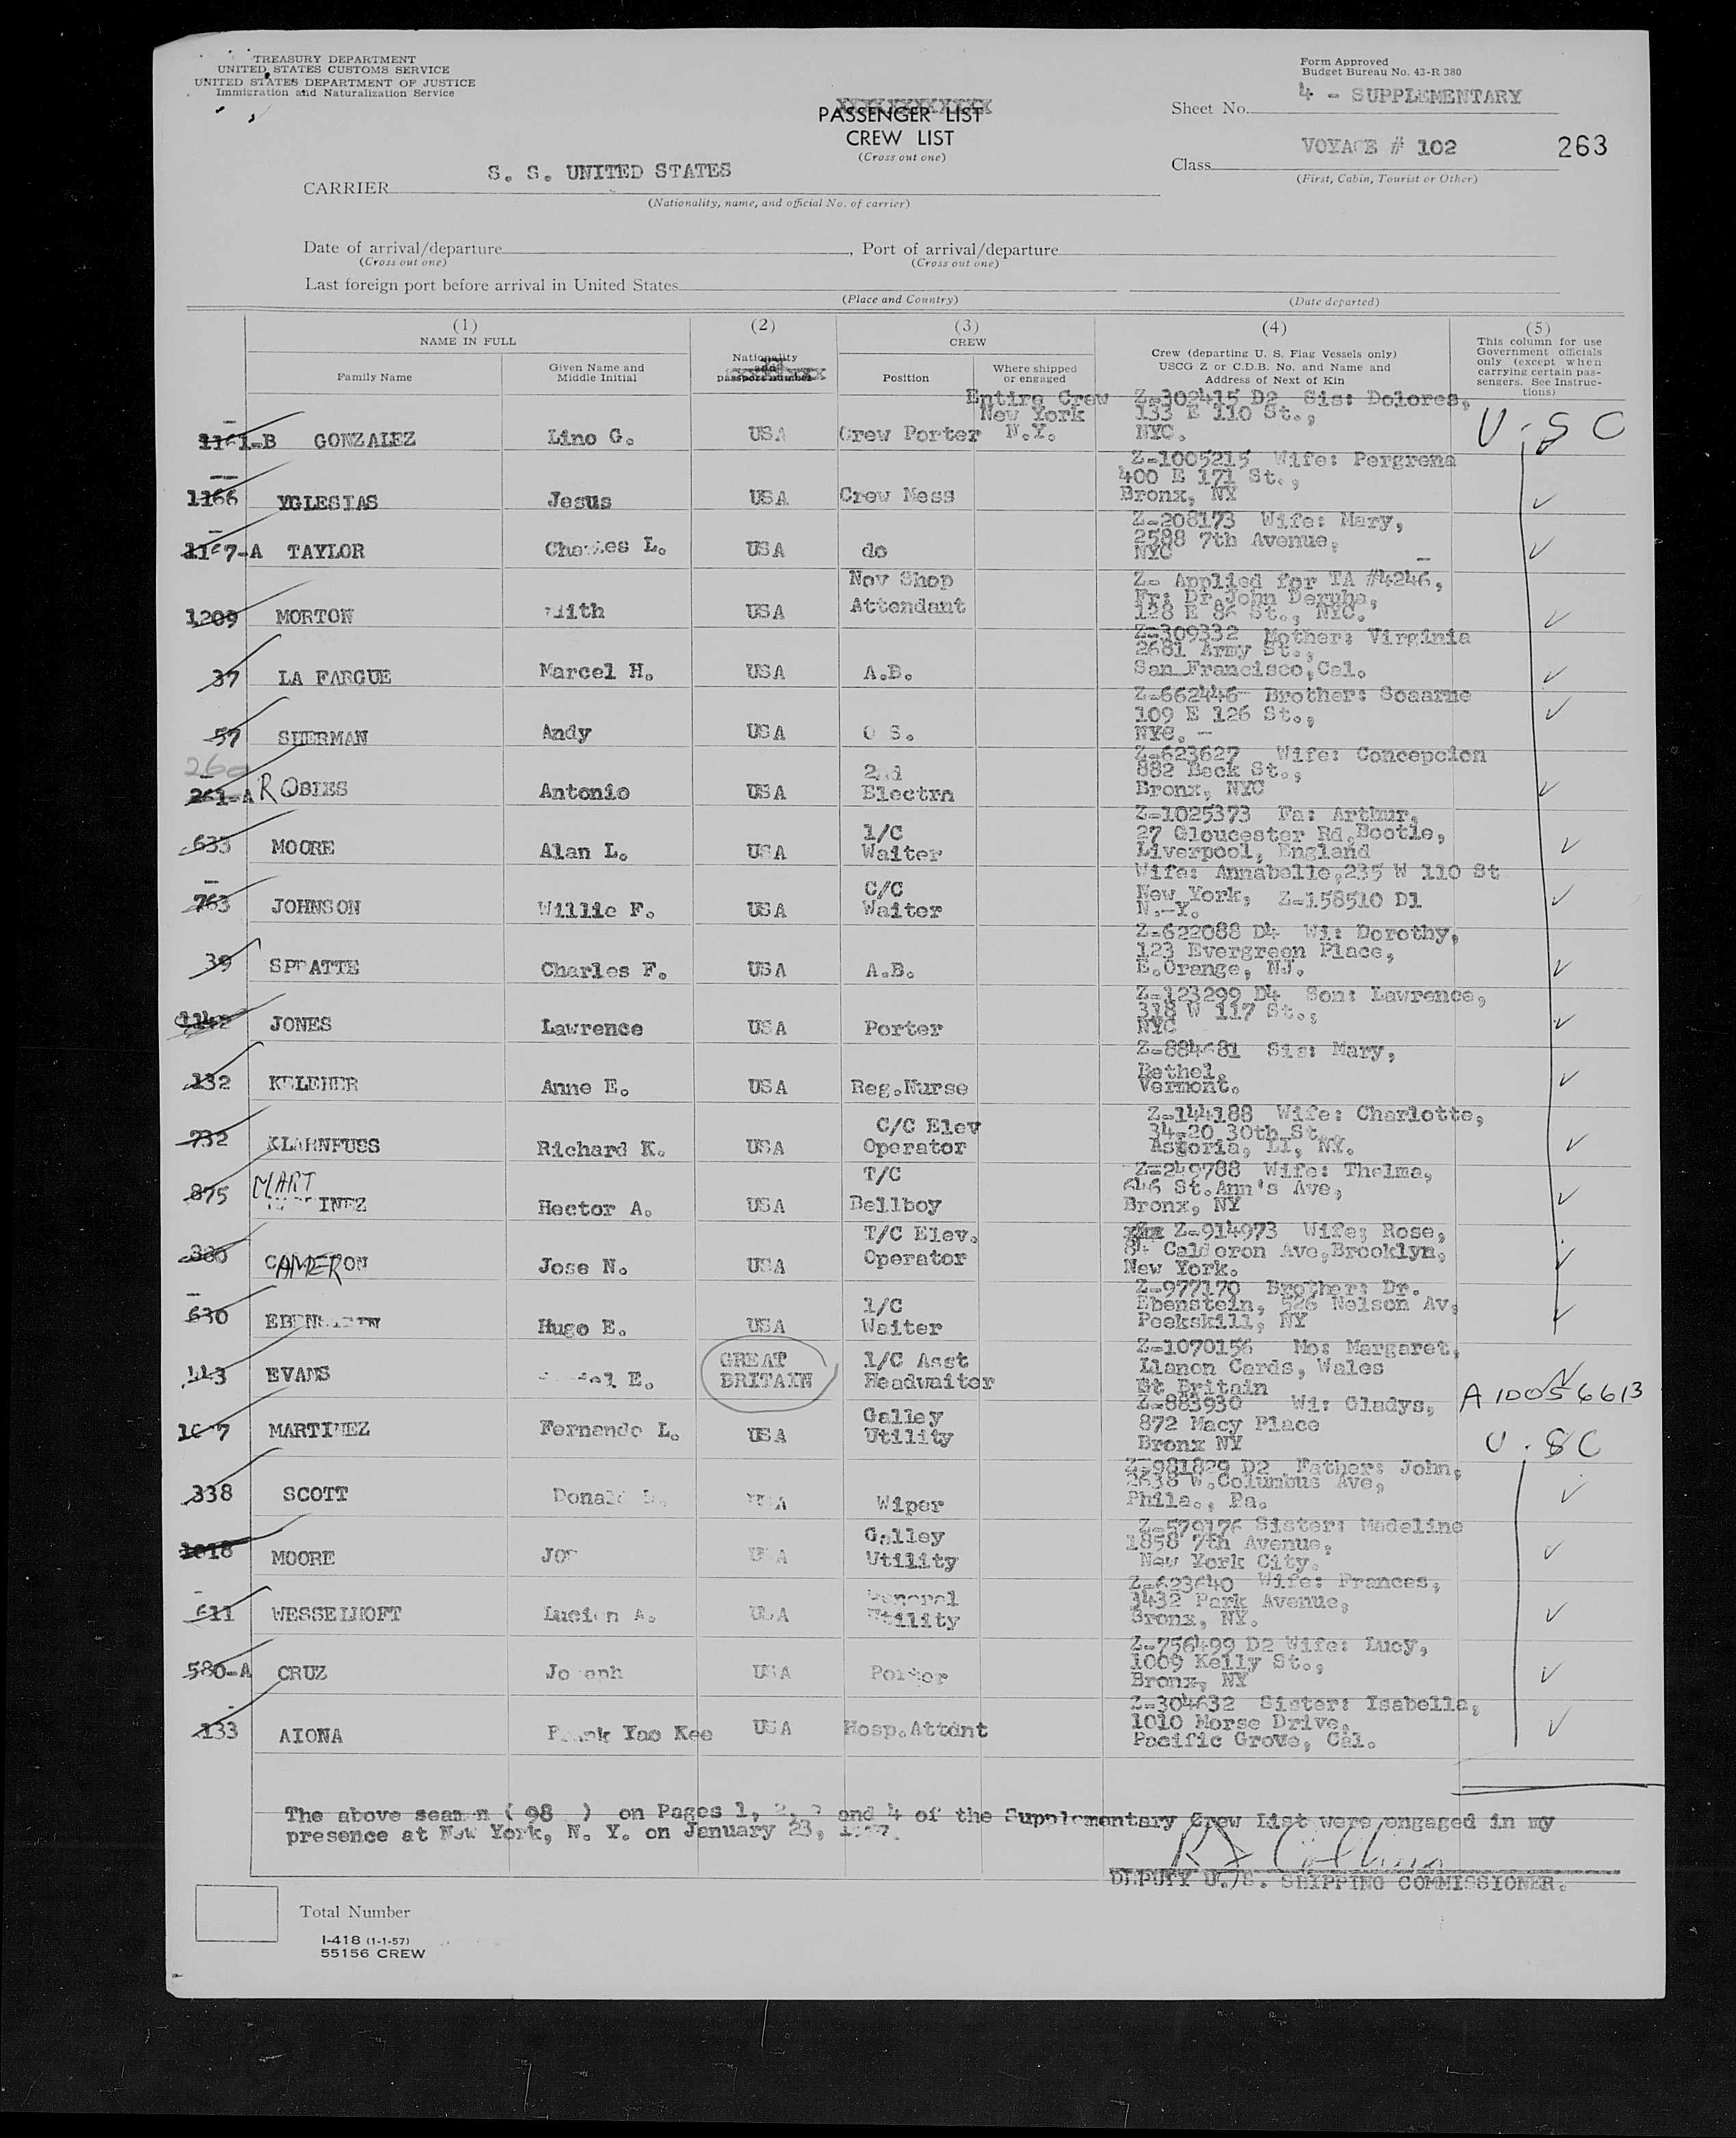 TREASURY DEPARTMENT
UNITED STATES CUSTOMS SERVICE
UNITED STATES DEPARTMENT OF JUSTICE
Immigration and Naturalization Service
Form Approved
Budget Bureau No. 43-R 380
PASSENGER LIST
CREW LIST
(Cross out one)
Sheet No. 4 - SUPPLEMENTARY
Class VOYAGE # 102
(First, Cabin, Tourist or Other)
263
CARRIER S. S. UNITED STATES
(Nationality, name, and official No. of carrier)
Date of arrival/departure , Port of arrival/departure
(Cross out one) (Cross out one)
Last foreign port before arrival in United States
(Place and Country) (Date departed)
(1) (2) (3) (4) (5)
NAME IN FULL
Family Name
Given Name and Middle Initial
Nationality and passport number
CREW
Position
Where shipped or engaged
Crew (departing U. S. Flag Vessels only)
USCG Z or C.D.B. No. and Name and
Address of Next of Kin
This column for use
Government officials
only (except when
carrying certain pas-
sengers. See Instruc-
tions)
Entire Crew Z-302415 D2 Sis: Dolores,
New York 133 E 110 St.,
1161-B GONZALEZ Lino G. USA Crew Porter N.Y. NYC. U.S C
Z-1005215 Wife: Pergrema
400 E 171 St.,
1166 YGLESIAS Jesus USA Crew Mess Bronx, NY
Z-208173 Wife: Mary,
2588 7th Avenue,
1167-A TAYLOR L. USA do NYC
Nov Shop Z- Applied for TA #4246,
Fr: Dr. John Deruha,
1209 MORTON USA Attendant 128 E 86 St., NYC.
Z-309332 Mother: Virginia
2681 Army St.,
37 LA FARGUE Marcel H. USA A.B. San Francisco, Cal.
Z-662446 Brother: Scaarne
109 E 126 St.,
57 SHERMAN Andy USA O.S. NYC.
260
Z-623627 Wife: Concepcion
2nd 882 Beck St.,
261-A ROBIES Antonio USA Electrn Bronx, NYC
Z-1025373 Fa: Arthur,
1/C 27 Gloucester Rd, Bootle,
635 MOORE Alan L. USA Waiter Liverpool, England
Wife: Annabelle, 235 W 110 St
C/C New York, Z-158510 D1
763 JOHNSON Willie F. USA Waiter N.Y.
Z-622088 D4 Wi: Dorothy,
123 Evergreen Place,
39 SPRATTE Charles F. USA A.B. E. Orange, NJ.
Z-123299 D4 Son: Lawrence,
318 W 117 St.,
1142 JONES Lawrence USA Porter NYC
Sis: Mary,
Bethel,
132 KELEHER Anne E. USA Reg. Nurse Vermont.
Z-144188 Wife: Charlotte,
C/C Elev 34-20 30th St.,
732 KLARNFUSS Richard K. USA Operator Astoria, LI, NY.
T/C Z-249788 Wife: Thelma,
646 St. Ann's Ave,
875 MART INEZ Hector A. USA Bellboy Bronx, NY
T/C Elev. Z-914973 Wife; Rose,
84 Calderon Ave, Brooklyn,
880 CAMERON Jose N. USA Operator New York.
Z-977170 Brother: Dr.
1/C Ebenstein, 526 Nelson Av,
630 Hugo E. USA Waiter Peekskill, NY
Z-1070156 Mo: Margaret,
GREAT 1/C Asst Llanon Cards, Wales
EVANS E. BRITAIN Headwaiter Gt Britain A 10056613
Z-883930 Wi: Gladys,
Galley 872 Macy Place
MARTINEZ Fernando L. USA Utility Bronx NY U.S C
Z-981829 D2 Father: John,
2638 W. Columbus Ave,
338 SCOTT Donald USA Wiper Phila., Pa.
Z-579176 Sister: Madeline
Galley 1858 7th Avenue,
1018 MOORE USA Utility New York City.
Z-623640 Wife: Frances,
General 3432 Park Avenue,
611 WESSELHOFT Lucien A. USA Utility Bronx, NY.
Z-756499 D2 Wife: Lucy,
1009 Kelly St.,
580-A CRUZ Joseph USA Porter Bronx, NY
Z-304632 Sister: Isabella,
1010 Morse Drive,
133 AIONA Frank Yao Kee USA Hosp. Attdnt Pacific Grove, Cal.
The above seamen ( 98 ) on Pages 1, 2, 3 and 4 of the Supplementary Crew List were engaged in my
presence at New York, N. Y. on January 23, 1957.
DEPUTY U. S. SHIPPING COMMISSIONER.
Total Number
I-418 (1-1-57)
55156 CREW